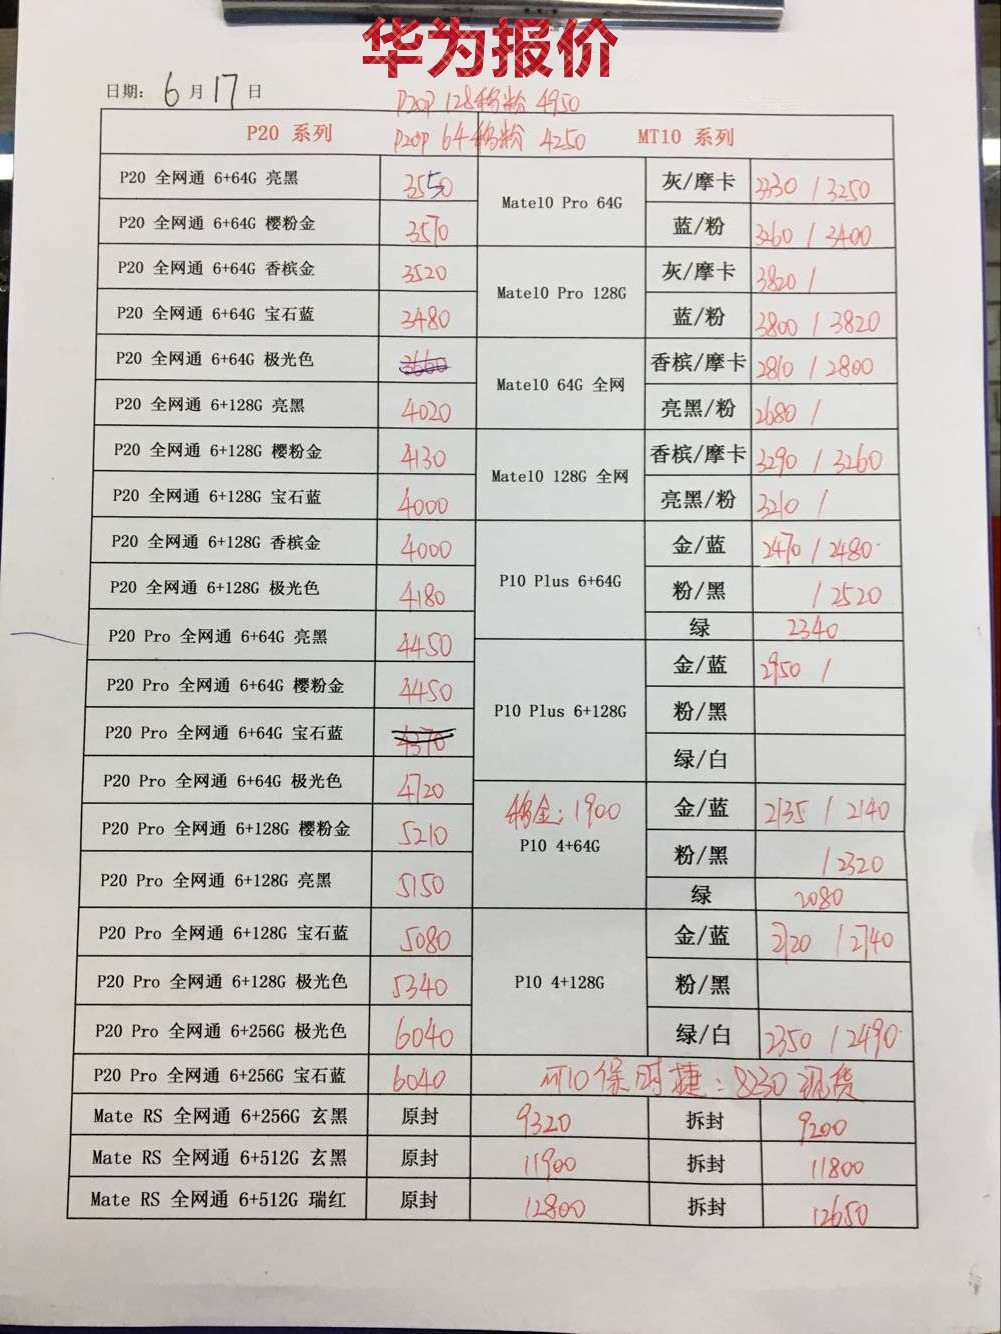 华为报价
日期: 6 月 17 日
P20P 128移粉 4950
P20P 64移粉 4250
P20 系列 MT10 系列
P20 全网通 6+64G 亮黑 3550 Mate10 Pro 64G 灰/摩卡 3330 / 3250
P20 全网通 6+64G 樱粉金 3570 蓝/粉 3260 / 3400
P20 全网通 6+64G 香槟金 3520 Mate10 Pro 128G 灰/摩卡 3820 /
P20 全网通 6+64G 宝石蓝 3480 蓝/粉 3800 / 3820
P20 全网通 6+64G 极光色 3660 Mate10 64G 全网 香槟/摩卡 2810 / 2800
P20 全网通 6+128G 亮黑 4020 亮黑/粉 2680 /
P20 全网通 6+128G 樱粉金 4130 Mate10 128G 全网 香槟/摩卡 3290 / 3260
P20 全网通 6+128G 宝石蓝 4000 亮黑/粉 3210 /
P20 全网通 6+128G 香槟金 4000 P10 Plus 6+64G 金/蓝 2470 / 2480
P20 全网通 6+128G 极光色 4180 粉/黑 / 2520
P20 Pro 全网通 6+64G 亮黑 4450 绿 2340
P20 Pro 全网通 6+64G 樱粉金 4450 P10 Plus 6+128G 金/蓝 2950 /
粉/黑
P20 Pro 全网通 6+64G 宝石蓝 4370 绿/白
P20 Pro 全网通 6+64G 极光色 4720 移金: 1900
P20 Pro 全网通 6+128G 樱粉金 5210 P10 4+64G 金/蓝 2135 / 2140
粉/黑 / 2320
P20 Pro 全网通 6+128G 亮黑 5150 绿 2080
P20 Pro 全网通 6+128G 宝石蓝 5080 P10 4+128G 金/蓝 2720 / 2740
P20 Pro 全网通 6+128G 极光色 5340 粉/黑
P20 Pro 全网通 6+256G 极光色 6040 绿/白 2350 / 2490
P20 Pro 全网通 6+256G 宝石蓝 6040 MT10保时捷: 8230 现货
Mate RS 全网通 6+256G 玄黑 原封 9320 拆封 9200
Mate RS 全网通 6+512G 玄黑 原封 11900 拆封 11800
Mate RS 全网通 6+512G 瑞红 原封 12800 拆封 12650